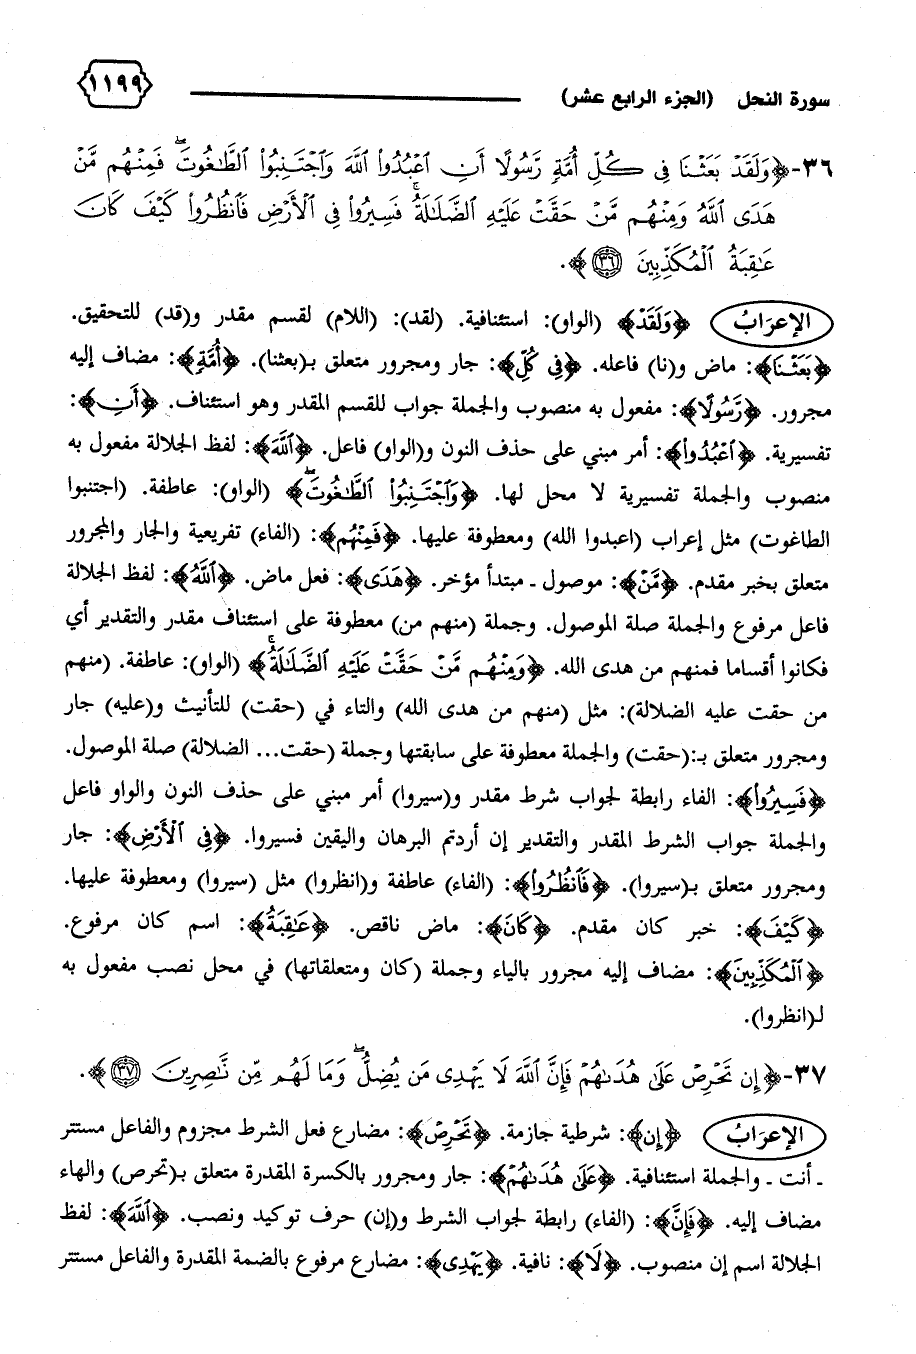 سورة النحل (الجزء الرابع عشر) ١١٩٩
٣٦- ﴿وَلَقَدْ بَعَثْنَا فِي كُلِّ أُمَّةٍ رَّسُولًا أَنِ اعْبُدُوا اللَّهَ وَاجْتَنِبُوا الطَّاغُوتَ ۖ فَمِنْهُم مَّنْ
هَدَى اللَّهُ وَمِنْهُم مَّنْ حَقَّتْ عَلَيْهِ الضَّلَالَةُ ۚ فَسِيرُوا فِي الْأَرْضِ فَانظُرُوا كَيْفَ كَانَ
عَاقِبَةُ الْمُكَذِّبِينَ ٣٦﴾.
الإعرَابُ ﴿وَلَقَدْ﴾ (الواو): استئنافية. (لقد): (اللام) لقسم مقدر و(قد) للتحقيق.
﴿بَعَثْنَا﴾: ماض و(نا) فاعله. ﴿فِي كُلِّ﴾: جار ومجرور متعلق بـ(بعثنا). ﴿أُمَّةٍ﴾: مضاف إليه
مجرور. ﴿رَّسُولًا﴾: مفعول به منصوب والجملة جواب للقسم المقدر وهو استئناف. ﴿أَنِ﴾:
تفسيرية. ﴿اعْبُدُوا﴾: أمر مبني على حذف النون و(الواو) فاعل. ﴿اللَّهَ﴾: لفظ الجلالة مفعول به
منصوب والجملة تفسيرية لا محل لها. ﴿وَاجْتَنِبُوا الطَّاغُوتَ ۖ﴾ (الواو): عاطفة. (اجتنبوا
الطاغوت) مثل إعراب (اعبدوا الله) ومعطوفة عليها. ﴿فَمِنْهُم﴾: (الفاء) تفريعية والجار والمجرور
متعلق بخبر مقدم. ﴿مَّنْ﴾: موصول ـ مبتدأ مؤخر. ﴿هَدَى﴾: فعل ماض. ﴿اللَّهُ﴾: لفظ الجلالة
فاعل مرفوع والجملة صلة الموصول. وجملة (منهم من) معطوفة على استئناف مقدر والتقدير أي
فكانوا أقساما فمنهم من هدى الله. ﴿وَمِنْهُم مَّنْ حَقَّتْ عَلَيْهِ الضَّلَالَةُ ۚ﴾ (الواو): عاطفة. (منهم
من حقت عليه الضلالة): مثل (منهم من هدى الله) والتاء في (حقت) للتأنيث و(عليه) جار
ومجرور متعلق بـ:(حقت) والجملة معطوفة على سابقتها وجملة (حقت... الضلالة) صلة الموصول.
﴿فَسِيرُوا﴾: الفاء رابطة لجواب شرط مقدر و(سيروا) أمر مبني على حذف النون والواو فاعل
والجملة جواب الشرط المقدر والتقدير إن أردتم البرهان واليقين فسيروا. ﴿فِي الْأَرْضِ﴾: جار
ومجرور متعلق بـ(سيروا). ﴿فَانظُرُوا﴾: (الفاء) عاطفة و(انظروا) مثل (سيروا) ومعطوفة عليها.
﴿كَيْفَ﴾: خبر كان مقدم. ﴿كَانَ﴾: ماض ناقص. ﴿عَاقِبَةُ﴾: اسم كان مرفوع.
﴿الْمُكَذِّبِينَ﴾: مضاف إليه مجرور بالياء وجملة (كان ومتعلقاتها) في محل نصب مفعول به
لـ(انظروا).
٣٧- ﴿إِن تَحْرِصْ عَلَى هُدَاهُمْ فَإِنَّ اللَّهَ لَا يَهْدِي مَن يُضِلُّ ۖ وَمَا لَهُم مِّن نَّاصِرِينَ ٣٧﴾.
الإعرَابُ ﴿إِن﴾: شرطية جازمة. ﴿تَحْرِصْ﴾: مضارع فعل الشرط مجزوم والفاعل مستتر
ـ أنت ـ والجملة استئنافية. ﴿عَلَى هُدَاهُمْ﴾: جار ومجرور بالكسرة المقدرة متعلق بـ(تحرص) والهاء
مضاف إليه. ﴿فَإِنَّ﴾: (الفاء) رابطة لجواب الشرط و(إن) حرف توكيد ونصب. ﴿اللَّهَ﴾: لفظ
الجلالة اسم إن منصوب. ﴿لَا﴾: نافية. ﴿يَهْدِي﴾: مضارع مرفوع بالضمة المقدرة والفاعل مستتر